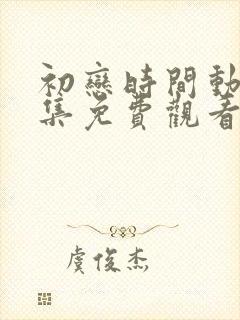 初戀時間動
集免費觀看
虞俊杰